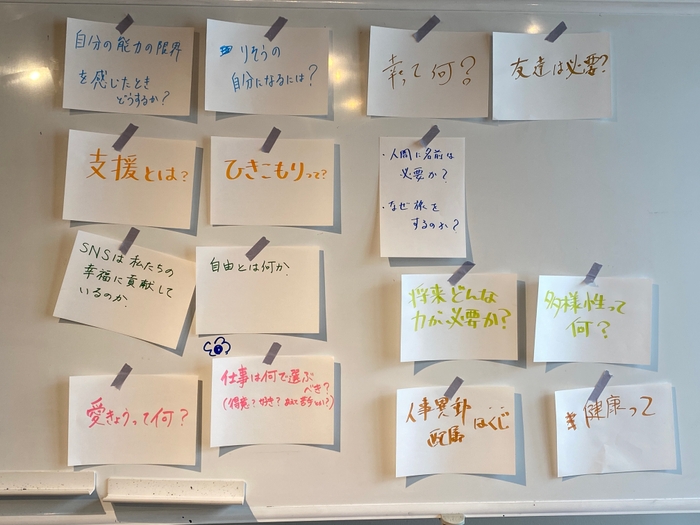 自分の能力の限界
を感じたとき
どうするか?
りそうの
自分になるには?
幸って何?
友達は必要?
支援とは?
ひきこもりって?
・人間に名前は
必要か?
・なぜ旅を
するのか?
SNSは私たちの
幸福に貢献して
いるのか
自由とは何か
将来どんな
力が必要か?
多様性って
何?
愛きょうって何?
仕事は何で選ぶ
べき?
(得意?好き?
人事異動
配属はくじ
健康って